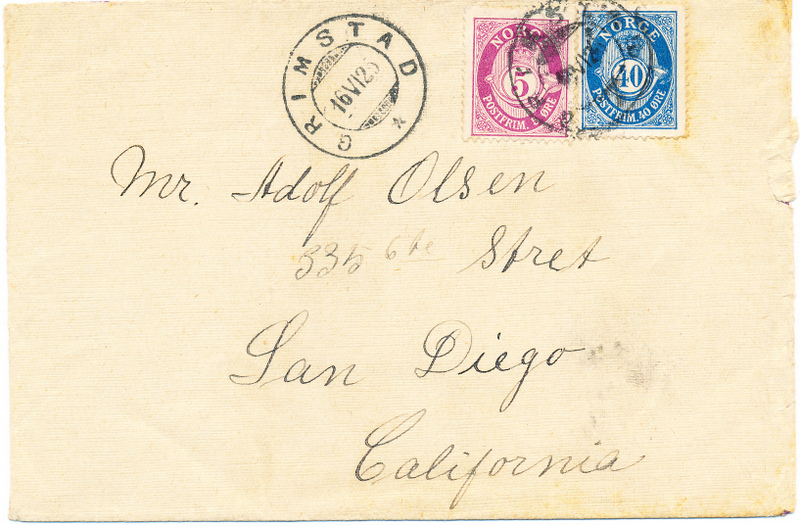 GRIMSTAD
16 VI 25
NORGE
5
POSTFRIM. ØRE
NORGE
40
POSTFRIM. 40 ØRE
Mr. Adolf Olsen
535 6te Stret
San Diego
California